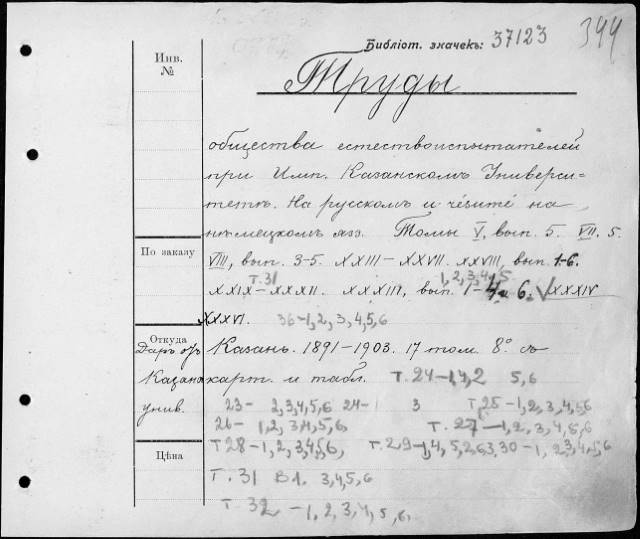 Библіот. значекъ: 37123 344
Инв.
№
Труды
общества естествоиспытателей
при Имп. Казанскомъ Универси=
тетѣ. На русскомъ и на
нѣмецкомъ яз. Томы V, вып. 5. VII. 5.
По заказу
VIII, вып. 3-5. XXIII-XXVII. XXVIII, вып. 1-6.
т. 31 1,2,3,4,5
XXIX-XXXII. XXXIII, вып. 1-4 6. V XXXIV
XXXVI. 36-1,2,3,4,5,6
Откуда
Даръ отъ Казань. 1891-1903. 17 том. 8º съ
Казан карт. и табл. Т. 24-1,2 5,6
унив. 23- 2,3,4,5,6 24- 3 Т. 25-1,2,3,4,5,6
26- 1,2,3,4,5,6 Т. 27-1,2,3,4,5,6
Т 28-1,2,3,4,5,6, Т. 29-1,4,5,2,6,3, 30-1,2,3,4,5,6
Цѣна
Т. 31 В1. 3,4,5,6
Т. 32 -1,2,3,4,5,6.